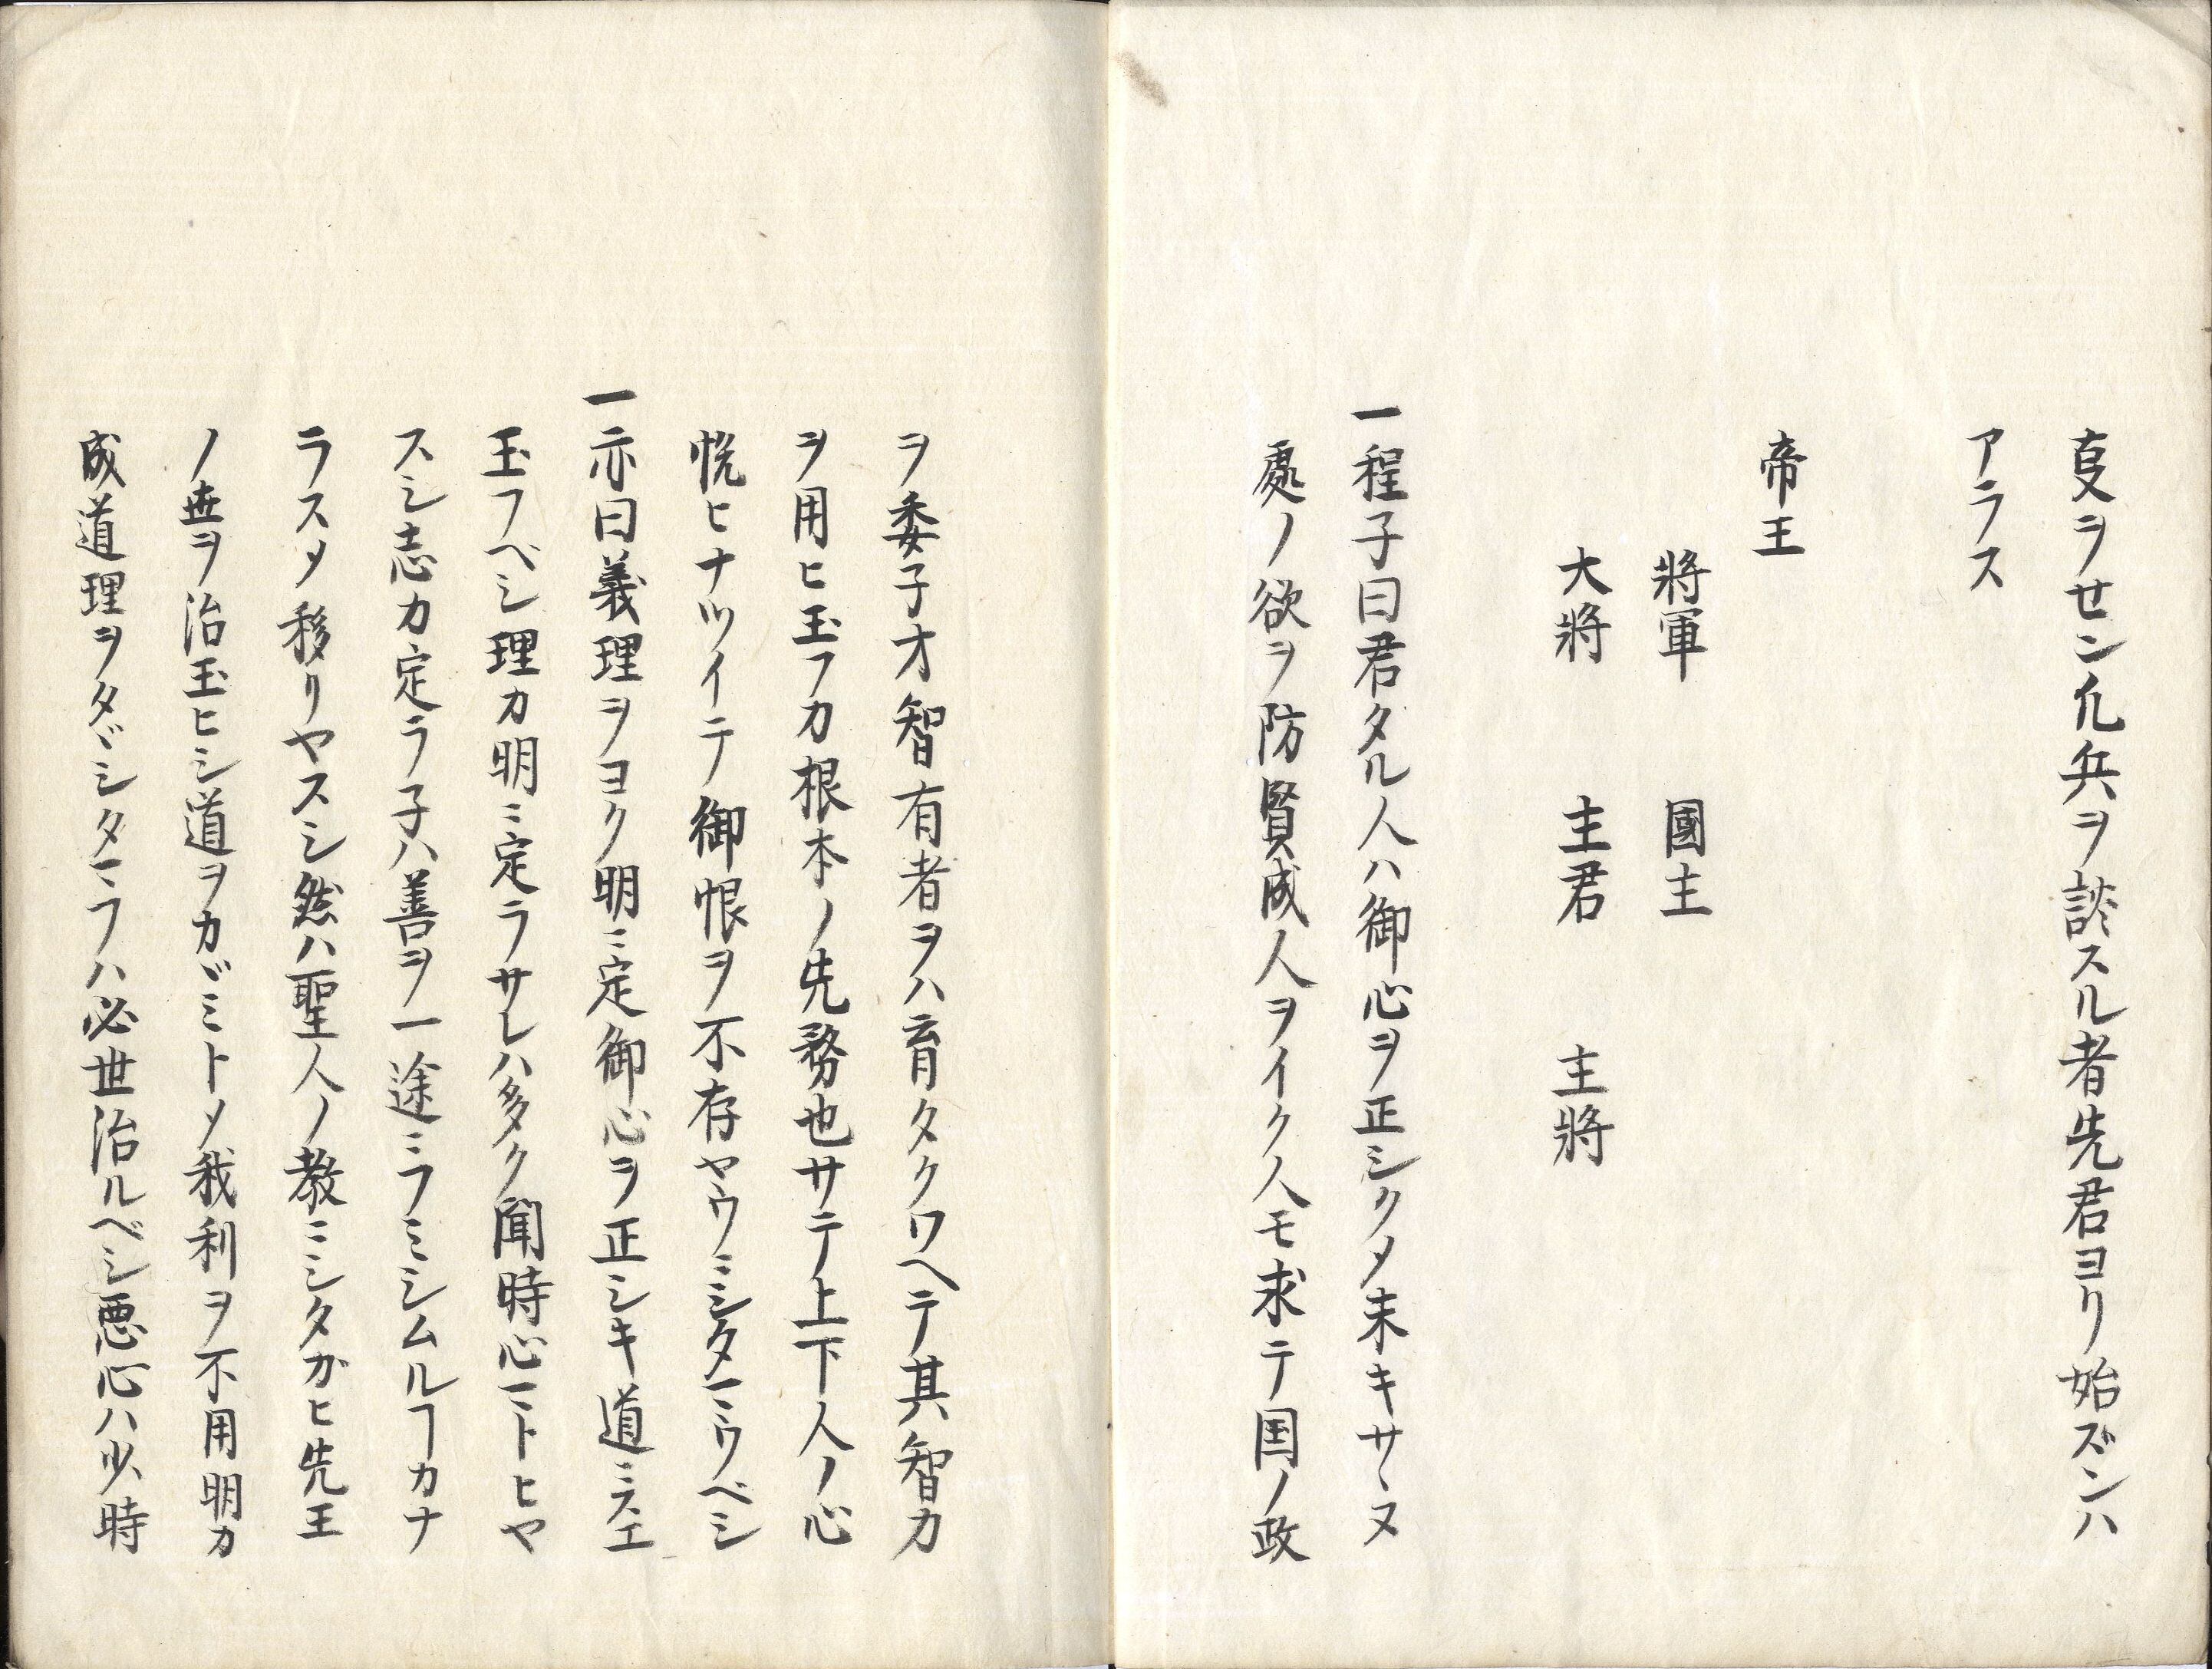 叓ヲセン凢兵ヲ談スル者先君ヨリ始ズンハ
アラス
帝王
將軍 國主
大將 主君 主將
一程子曰君タル人ハ御心ヲ正シクメ末キサヽヌ
處ノ欲ヲ防賢成人ヲイクタモ求テ国ノ政
ヲ委子才智有者ヲハ育タクワヘテ其智力
ヲ用ヒ玉フカ根本ノ先務也サテ上下人ノ心
悦ヒナツイテ御恨ヲ不存ヤウニシタマウベシ
一亦曰義理ヲヨク明ニ定御心ヲ正シキ道ニスエ
玉フベシ理カ明ニ定ラサレハ多ク聞時心マトヒヤ
スシ志カ定ラ子ハ善ヲ一途ニフミシムルヿカナ
ラスメ移リヤスシ然ハ聖人ノ教ニシタガヒ先王
ノ世ヲ治玉ヒシ道ヲカヾミトメ我利ヲ不用明カ
成道理ヲタヾシタマフハ必世治ルベシ悪心ハ少時